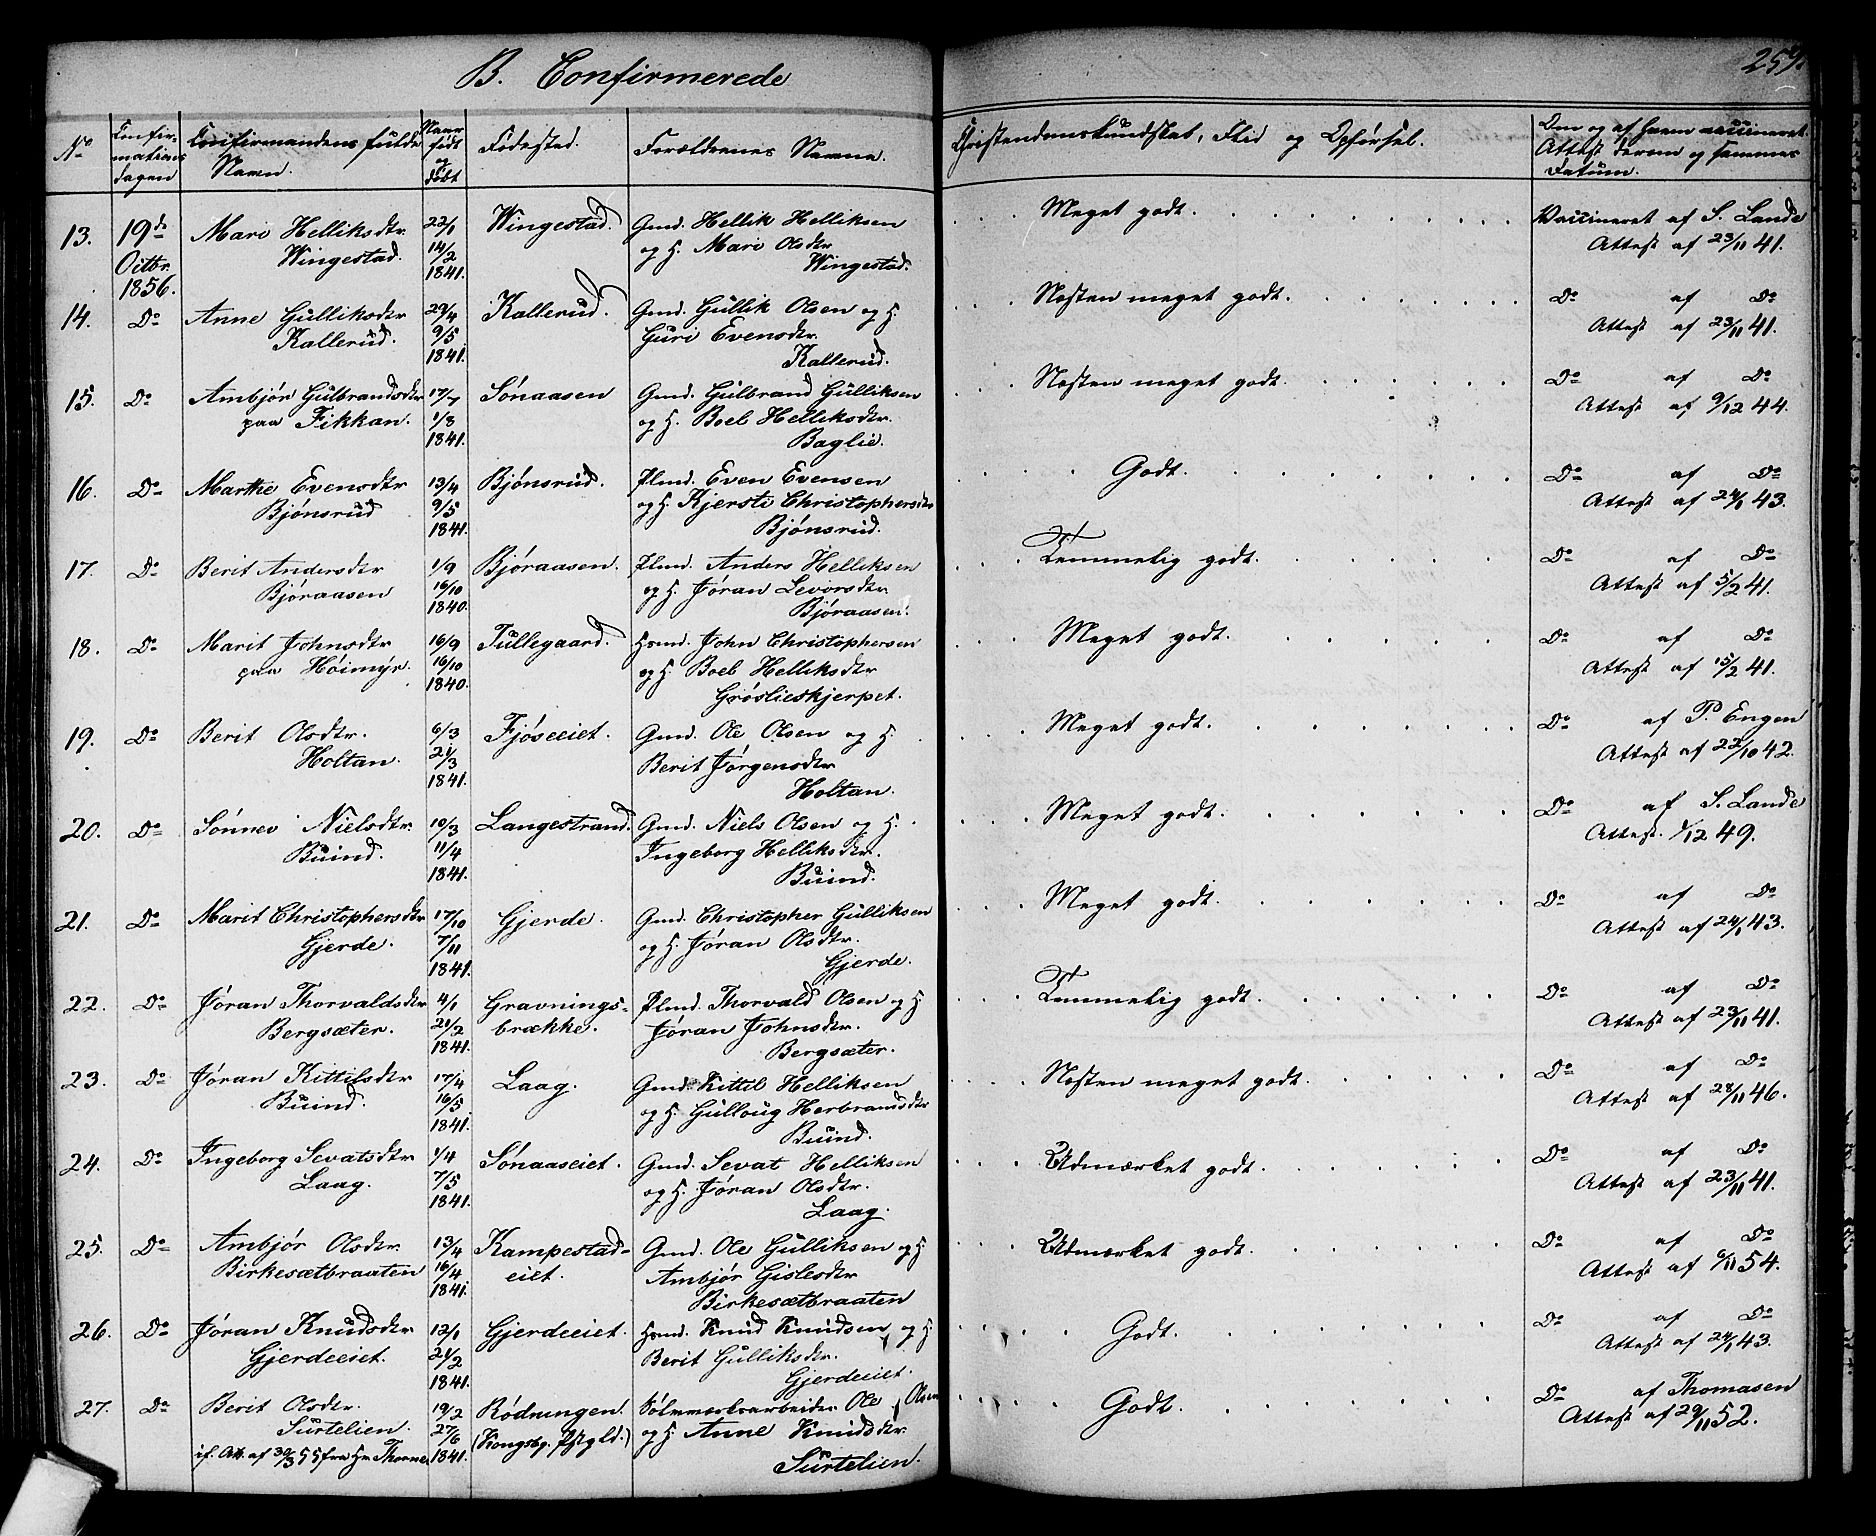 B. Confirmerede
257.
No
Confir-
mations
dagen
Confirmandens fulde
Navn.
Naar
født
og
døbt
Fødested.
Forældrenes Navne.
Christendomskundskab, Flid og Opførsel.
Om og af hvem vaccineret.
Attest derom og sammes
Datum.
13. 19de Octbr. 1856. Mari Helliksdtr. Wingestad. 22/1 14/2 1841. Wingestad. Gmd. Hellik Helliksen
og H. Mari Olsdtr.
Wingestad.
Meget godt. Vaccineret af S. Lande
Attest af 23/11 41.
14. Do Anne Gulliksdtr Kallerud. 29/4 9/5 1841. Kallerud. Gmd. Gullik Olsen og H.
Guri Evensdtr.
Kallerud.
Næsten meget godt. Do af Do
Attest af 23/11 41.
15. Do Ambjør Gulbrandsdtr paa Fikkan. 17/7 1/8 1841. Sønaasen Gmd. Gulbrand Gulliksen
og H. Boel Helliksdtr.
Baglie.
Næsten meget godt. Do af Do
Attest af 9/12 44.
16. Do Marthe Evensdtr Bjønsrud 13/4 9/5 1841. Bjønsrud. Ilmd. Even Evensen
og H. Kjersti Christophersdtr
Bjønsrud.
Godt. Do af Do
Attest af 24/1 43.
17. Do Berit Andersdtr Bjøraasen 1/9 16/10 1840. Bjøraasen. Ilmd. Anders Helliksen
og H. Jøran Levorsdtr
Bjøraasen.
Temmelig godt. Do af Do
Attest af 5/2 41.
18. Do Marit Johnsdtr paa Høimyr. 16/9 16/10 1840. Tullegaard. Hsmd. John Christophersen
og H. Boel Helliksdtr
Grøslieskjerpet.
Meget godt. Do af Do
Attest af 15/2 41.
19. Do Berit Olsdtr. Holtan. 6/3 21/3 1841. Fjøseeiet. Gmd. Ole Olsen og H.
Berit Jørgensdtr
Holtan.
Meget godt. Do af P. Engen
Attest af 22/10 42.
20. Do Sønnev Nielsdtr. Buind. 10/3 11/4 1841. Langestrand. Gmd. Niels Olsen og H.
Ingeborg Helliksdtr.
Buind.
Meget godt. Do af S. Lande
Attest. 1/12 49.
21. Do Marit Christophersdtr Gjerde. 17/10 7/11 1841. Gjerde. Gmd. Christopher Gulliksen
og H. Jøran Olsdtr.
Gjerde.
Meget godt. Do af Do
Attest af 24/1 43.
22. Do Jøran Thorvaldsdtr Bergsæter. 4/1 21/2 1841. Gravnings-
brække. Ilmd. Thorvald Olsen og H
Jøran Johnsdtr.
Bergsæter.
Temmelig godt. Do af Do
Attest af 23/11 41.
23. Do Jøran Kittilsdtr Buind. 17/4 16/5 1841. Laag. Gmd. Kittil Helliksen
og H. Gulloug Herbrandsdtr
Buind.
Næsten meget godt. Do af Do
Attest af 28/11 46.
24. Do Ingeborg Sevatsdtr Laag. 1/4 7/5 1841. Sønaaseiet. Gmd. Sevat Helliksen
og H. Jøran Olsdtr.
Laag.
Udmærket godt. Do af Do
Attest af 23/11 41.
25. Do Ambjør Olsdtr. Birkesætbraaten 13/4 16/4 1841. Kampestad-
eiet. Gmd. Ole Gulliksen og H
Ambjør Gislesdtr
Birkesætbraaten
Udmærket godt. Do af Do
Attest af 6/11 54.
26. Do Jøran Knudsdtr Gjerdeeiet. 12/1 21/2 1841. Gjerdeeiet. Hsmd. Knud Knudsen og H
Berit Gulliksdtr.
Gjerdeeiet.
Godt. Do af Do
Attest af 24/1 43.
27. Do Berit Olsdtr. Surtelien.
if. Att. af 30/3 55 fra Hr Thorne 19/2 27/6 1841. Rødningen.
(Kongsbg. Pstgld.) Sølvværksarbeider Ole Olsen
og H Anne Knudsdtr.
Surtelien.
Godt. Do af Thomasen
Attest af 29/11 52.